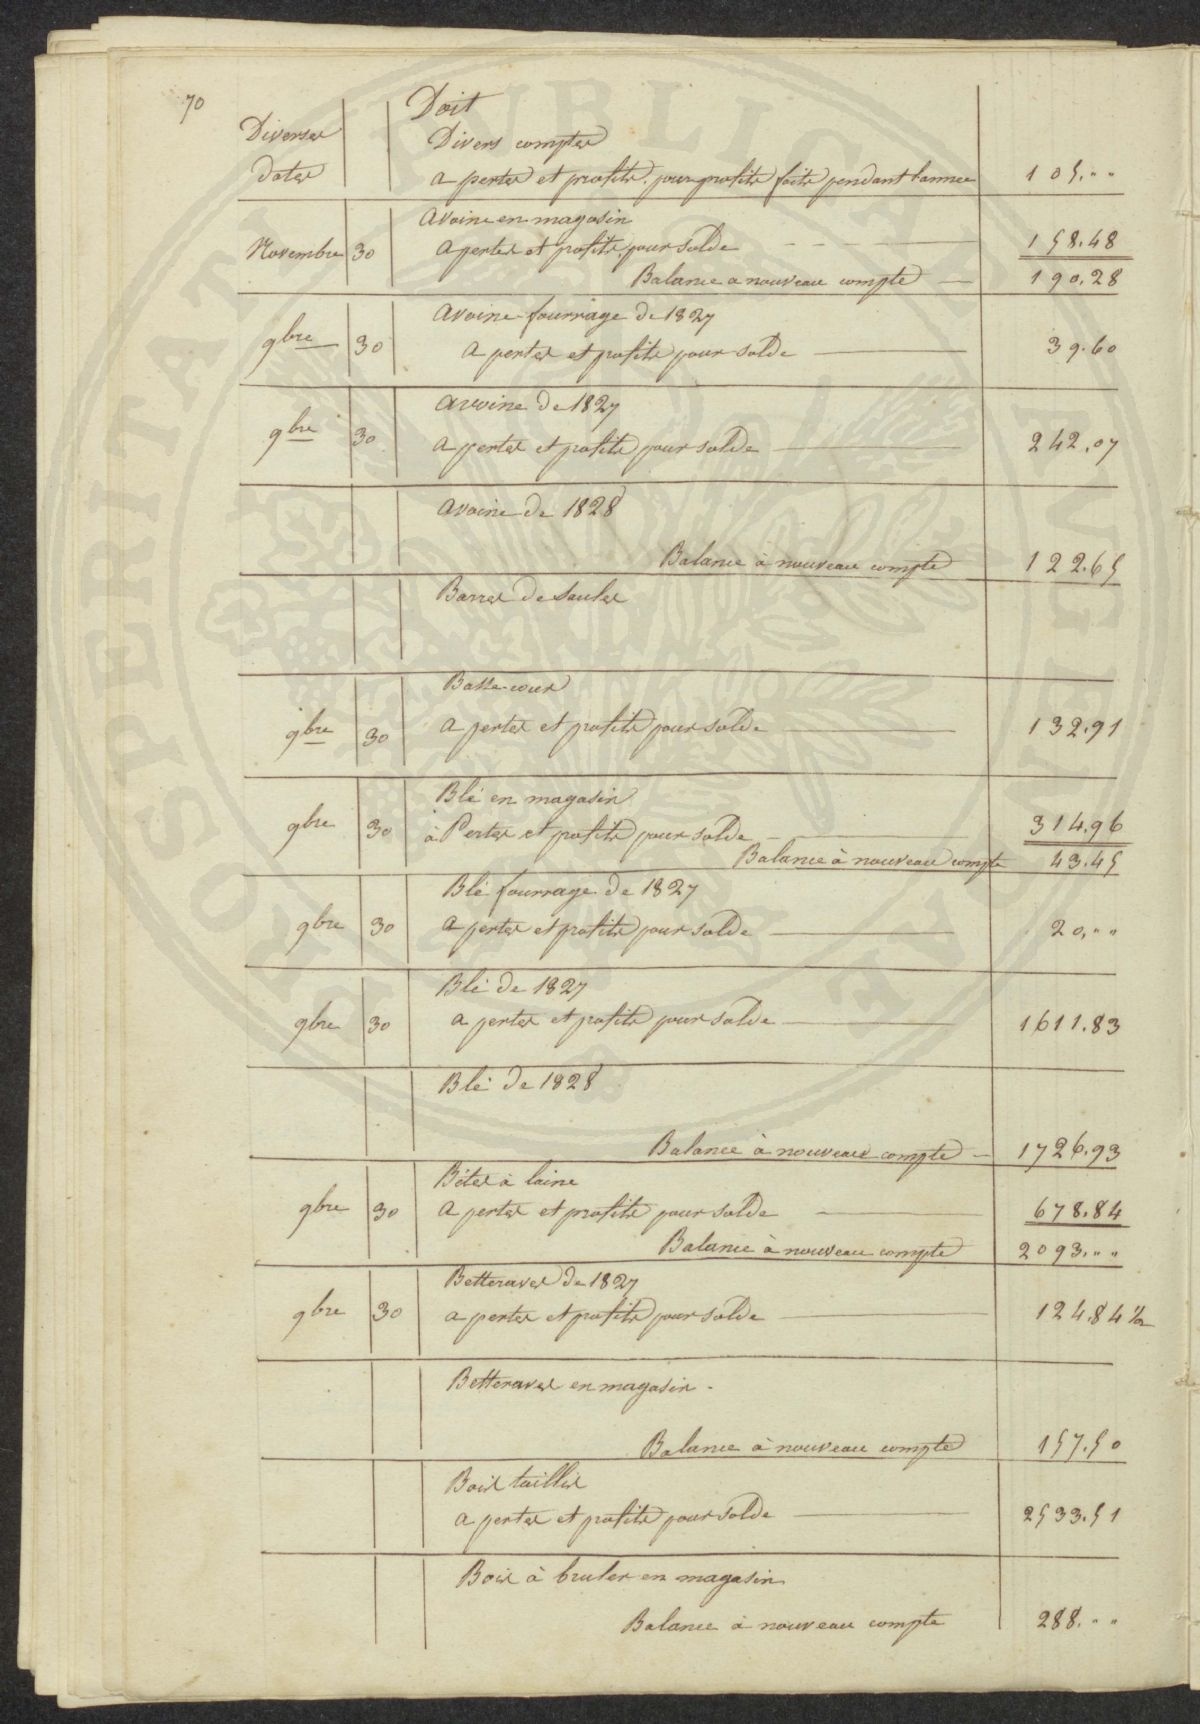 70
Doit
Diverses
Divers comptes
dates
a pertes et profits, pour profits faits pendant l'annee 105.""
Avoine en magasin
Novembre 30 a pertes et profits, pour solde 158.48
Balance a nouveau compte 190.28
Avoine fourrage de 1827
9bre 30 a pertes et profits pour solde 39.60
Avoine de 1827
9bre 30 a pertes et profits pour solde 242.07
Avoine de 1828
Balance à nouveau compte 122.65
Barres de saules
Basse-cour
9bre 30 a pertes et profits pour solde 132.91
Blé en magasin
9bre 30 à Pertes et profits pour solde 314.96
Balance à nouveau compte 43.45
Blé fourrage de 1827
9bre 30 a pertes et profits pour solde 20.""
Blé de 1827
9bre 30 a pertes et profits pour solde 1611.83
Blé de 1828
Balance à nouveau compte 1726.93
Bêtes à laine
9bre 30 a pertes et profits pour solde 678.84
Balance à nouveau compte 2093.""
Betteraves de 1827
9bre 30 a pertes et profits pour solde 124.84 ½
Betteraves en magasin.
Balance à nouveau compte 157.50
Bois taillis
a pertes et profits pour solde 2533.51
Bois à bruler en magasin
Balance à nouveau compte 288.""
PROSPERITATI PUBLICAE AUGENDAE